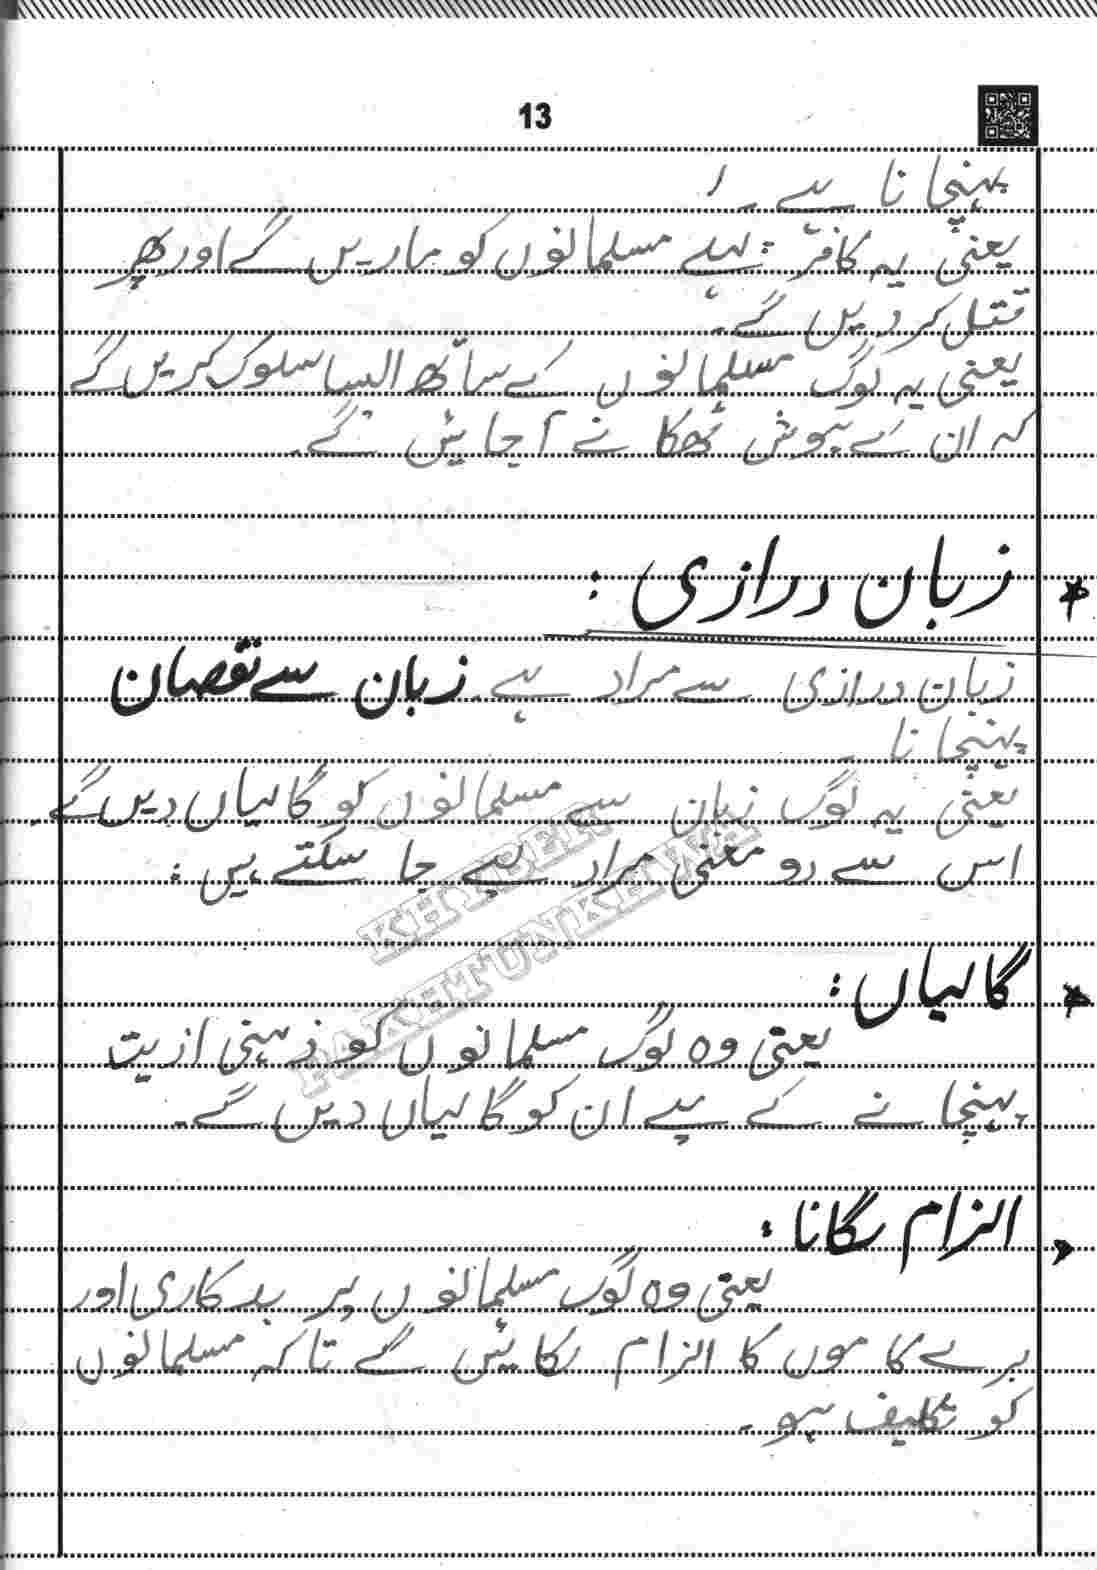 13
پہنچانا ہے۔
یعنی یہ کافر پہلے مسلمانوں کو ماریں گے اور پھر
قتل کر دیں گے۔
یعنی یہ لوگ مسلمانوں کے ساتھ ایسا سلوک کریں گے
کہ ان کے ہوش ٹھکانے آ جائیں گے۔
* زبان درازی :
زبان درازی سے مراد ہے زبان سے نقصان
پہنچانا ۔
یعنی یہ لوگ زبان سے مسلمانوں کو گالیاں دیں گے۔
اس سے دو معنی مراد لیے جا سکتے ہیں :
KHYBER
PAKHTUNKHWA
* گالیاں :
یعنی وہ لوگ مسلمانوں کو ذہنی ازیت
پہنچانے کے لیے ان کو گالیاں دیں گے۔
* الزام لگانا :
یعنی وہ لوگ مسلمانوں پر بدکاری اور
برے کاموں کا الزام لگائیں گے تاکہ مسلمانوں
کو تکلیف ہو ۔